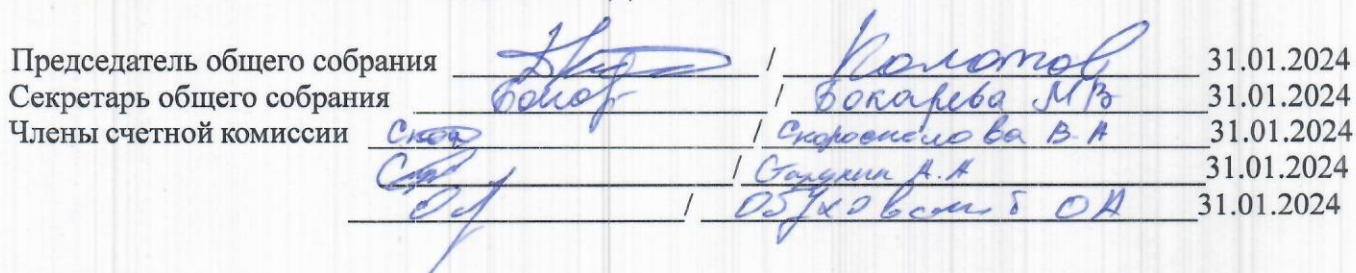 Председатель общего собрания / Колотов 31.01.2024
Секретарь общего собрания / Бокарева МВ 31.01.2024
Члены счетной комиссии / Скороспелова В.А 31.01.2024
/ А.А 31.01.2024
/ Обуховский ОА 31.01.2024